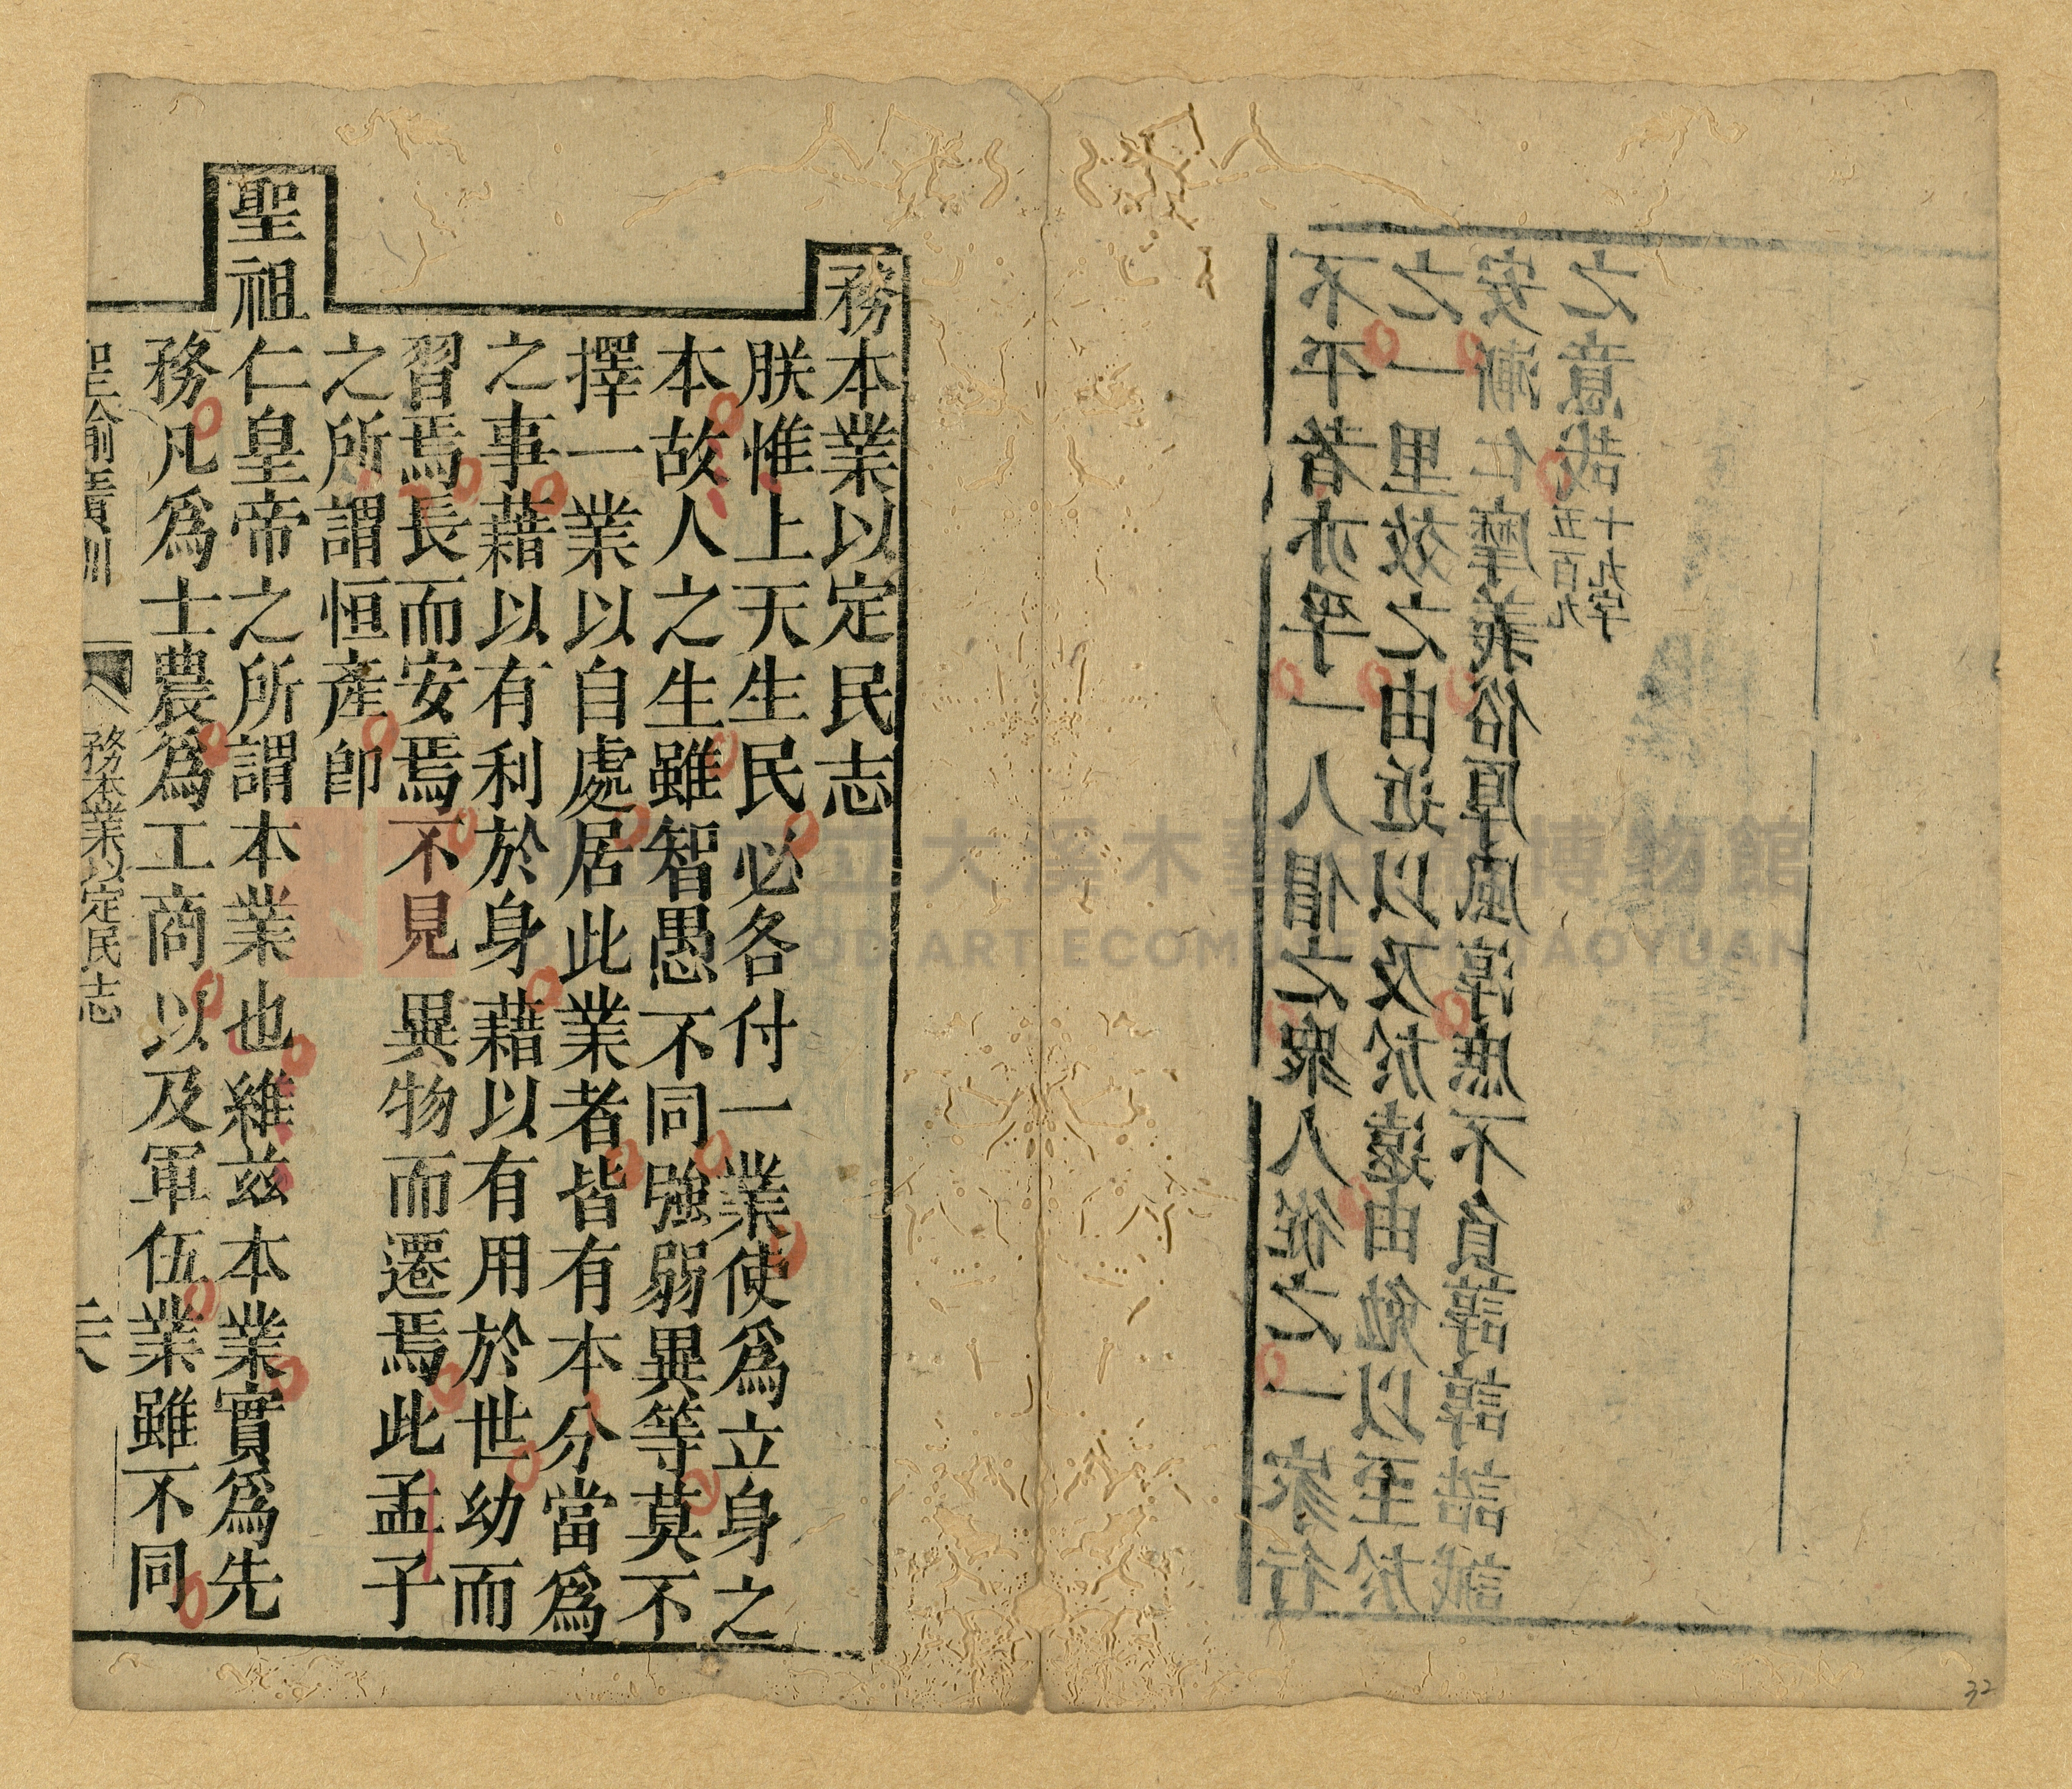 不平者亦平一人倡之衆人從之一家行
之一里效之由近以及於遠由勉以至於
安漸仁摩義俗厚風淳庶不負諄諄誥誡
之意哉五百九十九字
務本業以定民志
朕惟上天生民必各付一業使爲立身之
本故人之生雖智愚不同強弱異等莫不
擇一業以自處居此業者皆有本分當爲
之事藉以有利於身藉以有用於世幼而
習焉長而安焉不見異物而遷焉此孟子
之所謂恒產卽
聖祖仁皇帝之所謂本業也維兹本業實爲先
務凡爲士農爲工商以及軍伍業雖不同
聖諭廣訓
務本業以定民志
大溪木 博物館
ART ECOM TAOYUAN
32